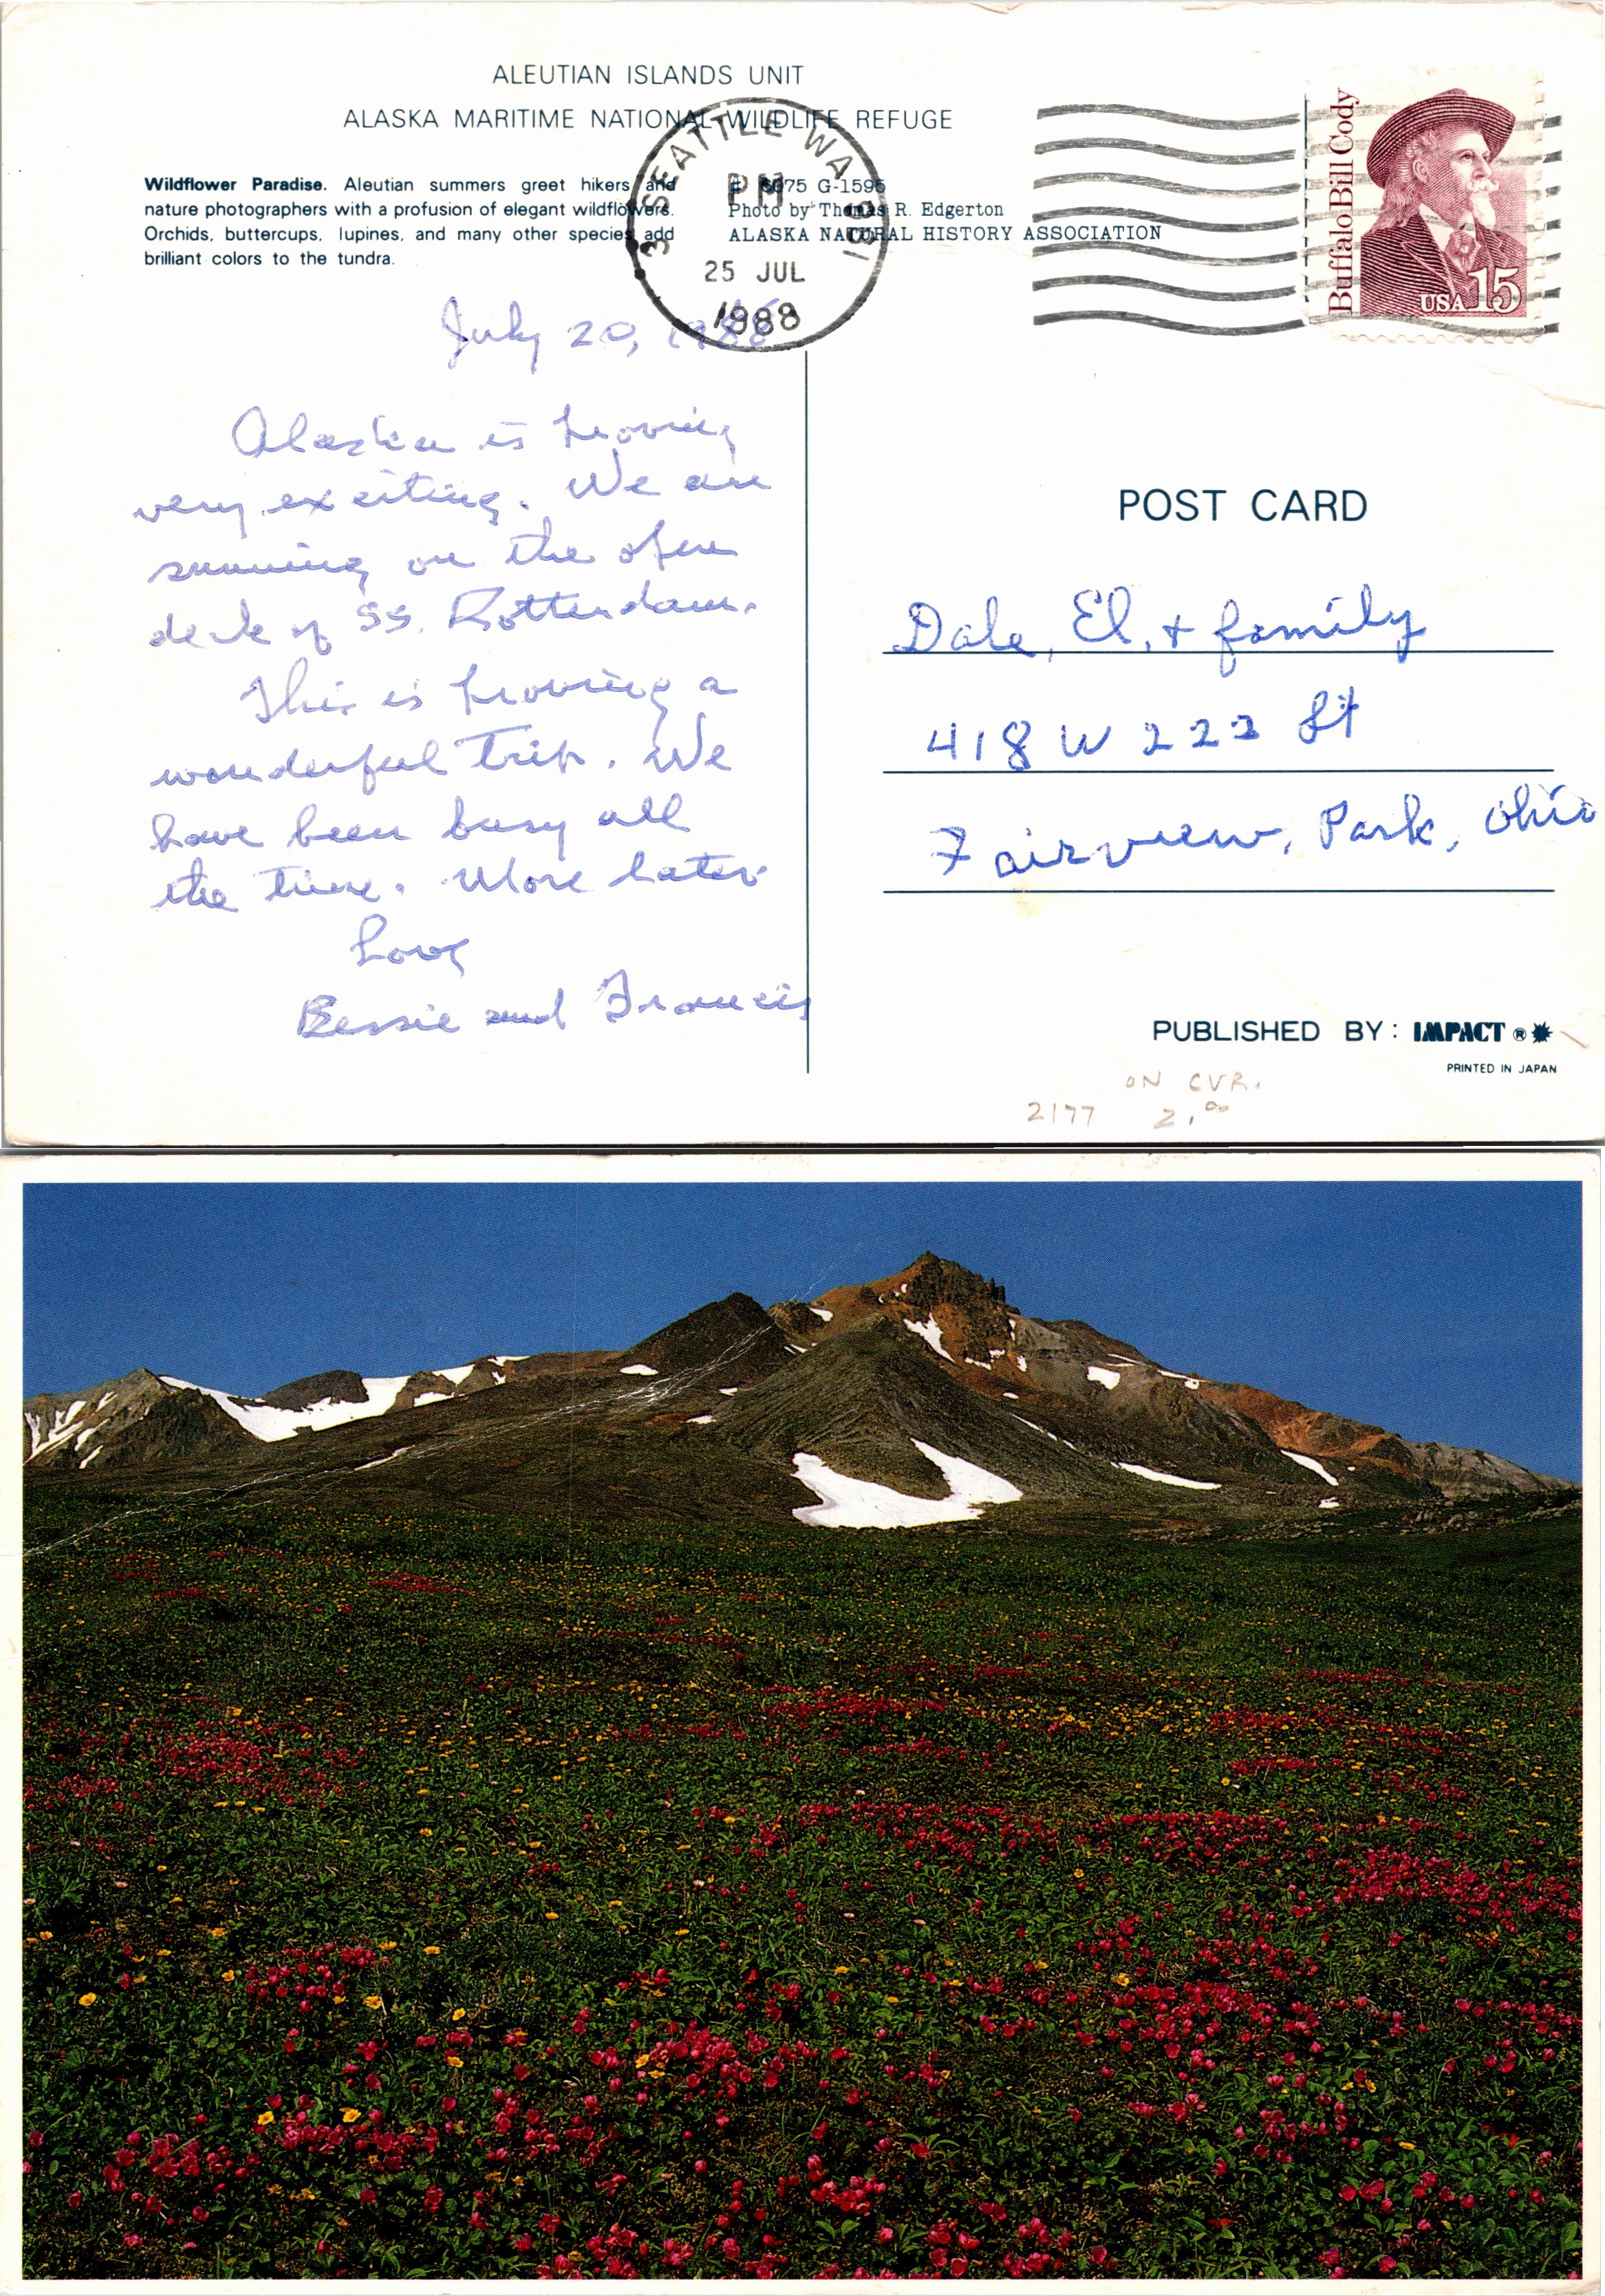 ALEUTIAN ISLANDS UNIT
ALASKA MARITIME NATIONAL WILDLIFE REFUGE
Wildflower Paradise. Aleutian summers greet hikers and
nature photographers with a profusion of elegant wildflowers.
Orchids, buttercups, lupines, and many other species add
brilliant colors to the tundra.
G-1595
Photo by Thomas R. Edgerton
ALASKA NATURAL HISTORY ASSOCIATION
SEATTLE WA 981
PM
25 JUL
1988
Buffalo Bill Cody
USA 15
July 20, 1988
Alaska is proving
very exciting. We are
sunning on the open
deck of SS. Rotterdam.
This is proving a
wonderful trip. We
have been busy all
the time. More later
Love
Bessie and Francis
POST CARD
Dale, El, + family
418 W 222 St
Fairview, Park, Ohio
PUBLISHED BY: IMPACT ®
PRINTED IN JAPAN
ON CVR.
2177 2.00